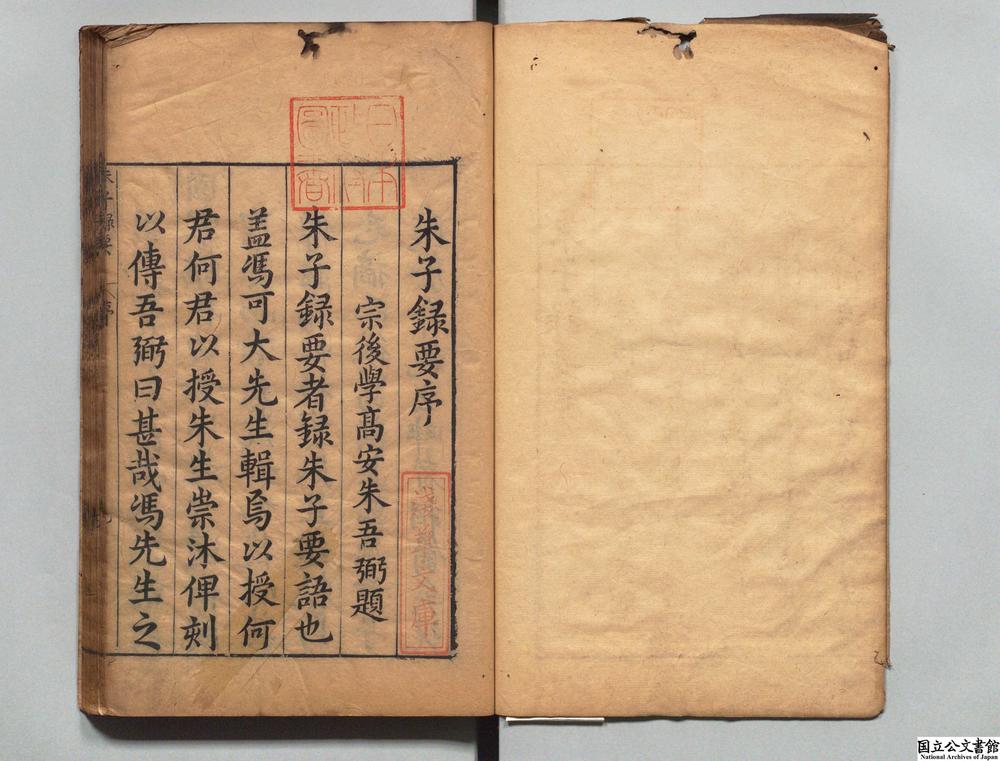 朱子録要序
宗後學髙安朱吾弼題
朱子録要者録朱子要語也
盖馮可大先生輯焉以授何
君何君以授朱生崇沐俾刻
以傳吾弼曰甚哉馮先生之
朱子録要
序
日本
政府
圖書
文庫
国立公文書館
National Archives of Japan